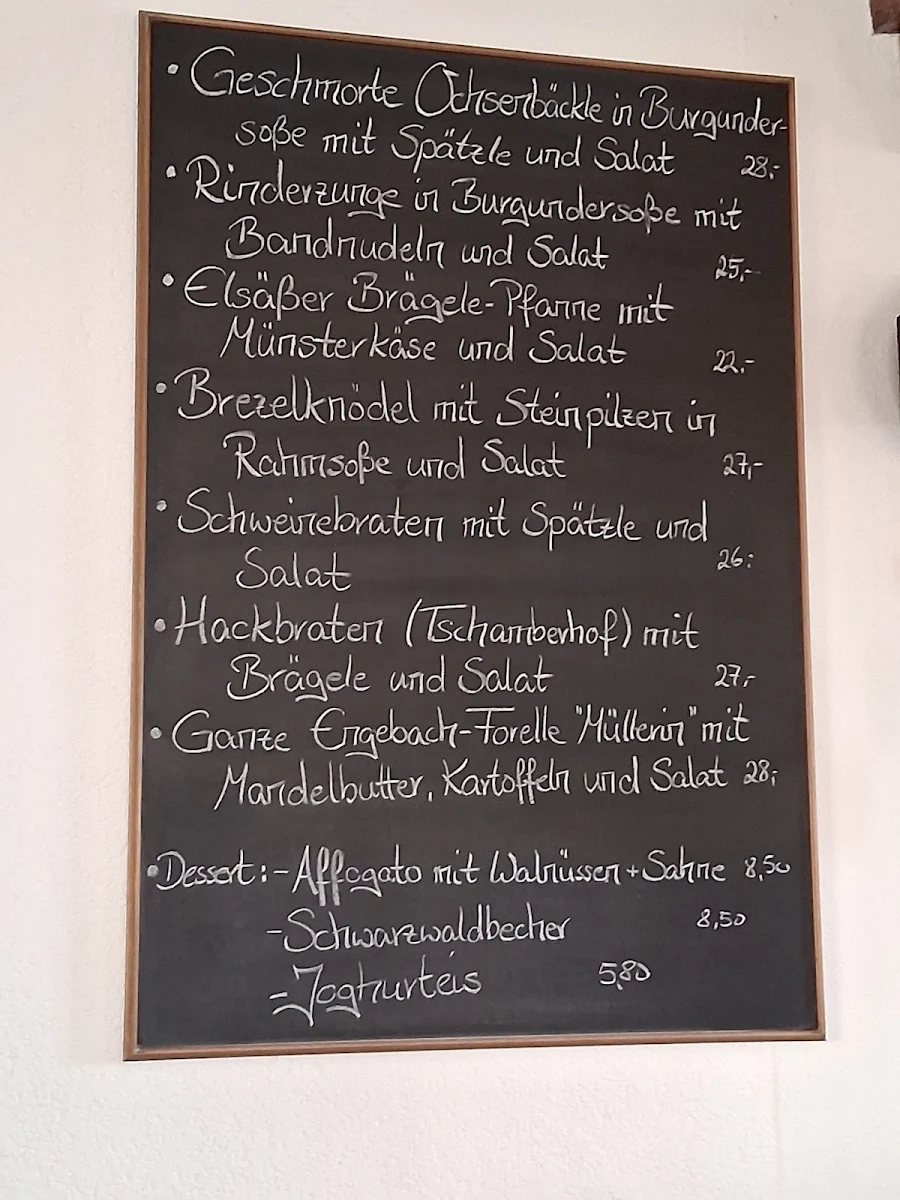 • Geschmorte Ochsenbäckle in Burgunder-
soße mit Spätzle und Salat 28.-
• Rinderzunge in Burgundersoße mit
Bandnudeln und Salat 25,-
• Elsäßer Brägele-Pfanne mit
Münsterkäse und Salat 22.-
• Brezelknödel mit Steinpilzen in
Rahmsoße und Salat 27,-
• Schweinebraten mit Spätzle und
Salat 26.-
• Hackbraten (Tschamberhof) mit
Brägele und Salat 27,-
• Ganze Engebach-Forelle "Müllerin" mit
Mandelbutter, Kartoffeln und Salat 28,-
• Dessert: - Affogato mit Walnüssen + Sahne 8,50
- Schwarzwaldbecher 8,50
- Joghurteis 5,80